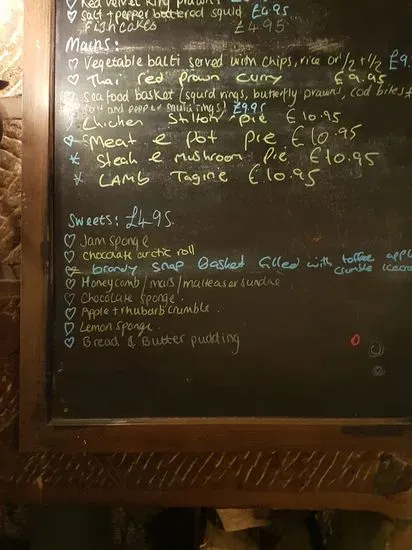 Red velvet king prawns
♡ Salt + pepper battered squid £4.95
Fishcakes £4.95
Mains:
♡ Vegetable balti served with chips, rice or 1/2 + 1/2 £9
♡ Thai red prawn curry £9.95
Seafood basket (squid rings, butterfly prawns, cod bites +
and pepper rings) £9.95
Chicken Stilton pie £10.95
Meat & Pot Pie £10.95
* Steak & Mushroom Pie £10.95
* LAMB Tagine £10.95
Sweets: £4.95
♡ Jam sponge
♡ Chocolate arctic roll
brandy snap Basked filled with toffee appl
crumble icecre
♡ Honeycomb/mars/malteaser sundae
♡ Chocolate sponge.
♡ Apple + rhubarb crumble.
♡ Lemon sponge.
♡ Bread & Butter pudding